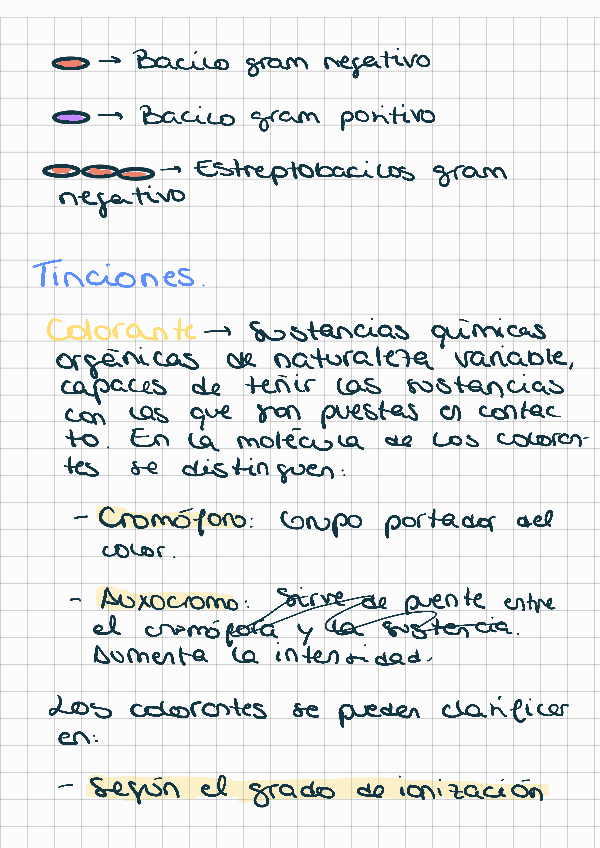 → Bacilo gram negativo
→ Bacilo gram positivo
→ Estreptobacilos gram
negativo
Tinciones.
Colorante → Sustancias químicas
orgánicas de naturaleza variable,
capaces de teñir las sustancias
con las que son puestas en contac
to. En la molécula de los coloran-
tes se distinguen:
- Cromóforo: Grupo portador del
color.
- Auxocromo: Sirve de puente entre
el cromófora y la sustancia.
Aumenta la intensidad.
Los colorantes se pueden clasificar
en:
- Según el grado de ionización